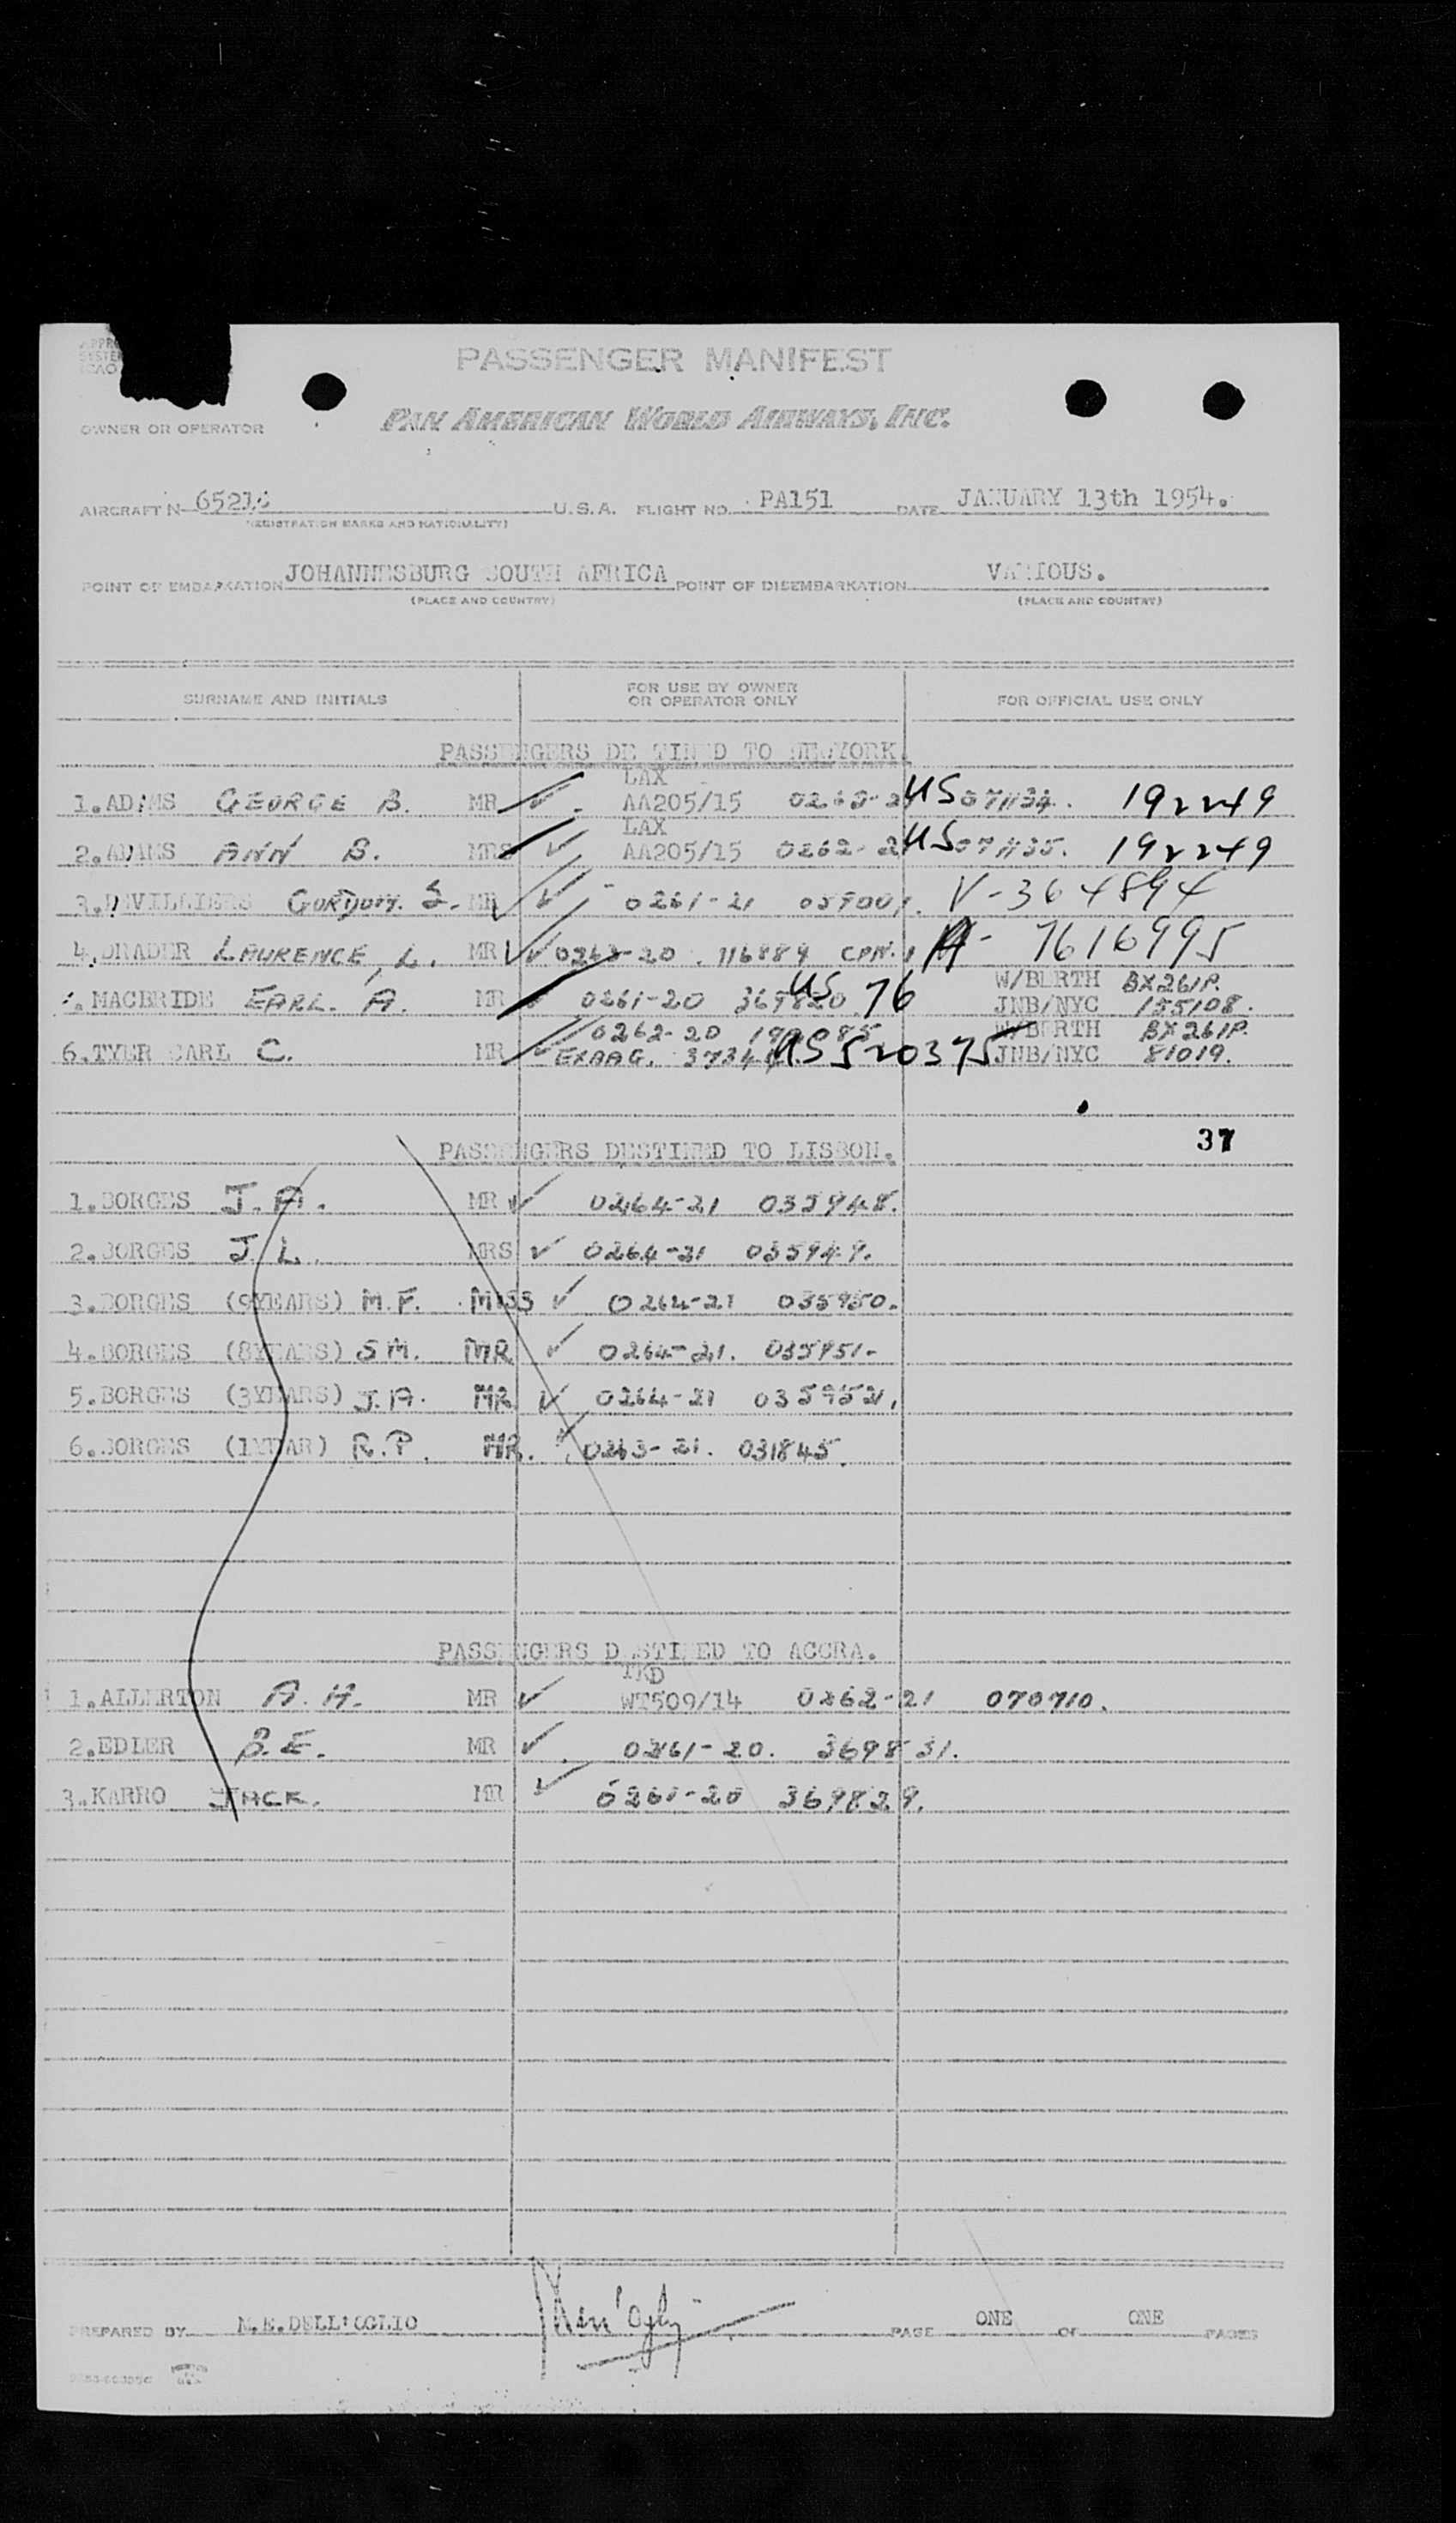 PASSENGER MANIFEST
OWNER OR OPERATOR
PAN AMERICAN WORLD AIRWAYS, INC.
AIRCRAFT N U.S.A. FLIGHT NO. PA151 DATE JANUARY 13th 1954.
(REGISTRATION MARKS AND NATIONALITY)
POINT OF EMBARKATION JOHANNESBURG SOUTH AFRICA POINT OF DISEMBARKATION VARIOUS.
(PLACE AND COUNTRY) (PLACE AND COUNTRY)
SURNAME AND INITIALS FOR USE BY OWNER OR OPERATOR ONLY FOR OFFICIAL USE ONLY
PASSENGERS DESTINED TO NEWYORK.
LAX
1.ADAMS GEORGE B. MR AA205/15 US 192249
LAX
2.ADAMS ANN B. MRS AA205/15 US 192249
3.DEVILLIERS MR 0261-21 V-364894
4.DRADER LAURENCE, L. MR 116889 CPN. A- 7616995
W/BERTH BX261P.
MACBRIDE EARL. A. MR 0261-20 US 76 JNB/NYC 155108.
0262-20 W/BERTH BX261P.
6.TYER CARL C. MR US 520375 JNB/NYC 81019.
37
PASSENGERS DESTINED TO LISBON.
1.BORGES J.A. MR 0264-21 035948.
2.BORGES J.L. MRS 0264-21 035949.
3.BORGES (9YEARS) M.F. MISS 0264-21 035950.
4.BORGES (8YEARS) S.M. MR 0264-21. 035951.
5.BORGES (3YEARS) J.A. MR 0264-21 035952.
6.BORGES (1YEAR) R.P. MR. 0263-21. 031845.
PASSENGERS DESTINED TO ACCRA.
TKD
1.ALLERTON A.H. MR WT509/14 0262-21 070710.
2.EDLER B.E. MR 0261-20. 369831.
3.KARRO JACK. MR 0261-20 369829.
PREPARED BY M.E.DELL'OGLIO PAGE ONE OF ONE PAGES